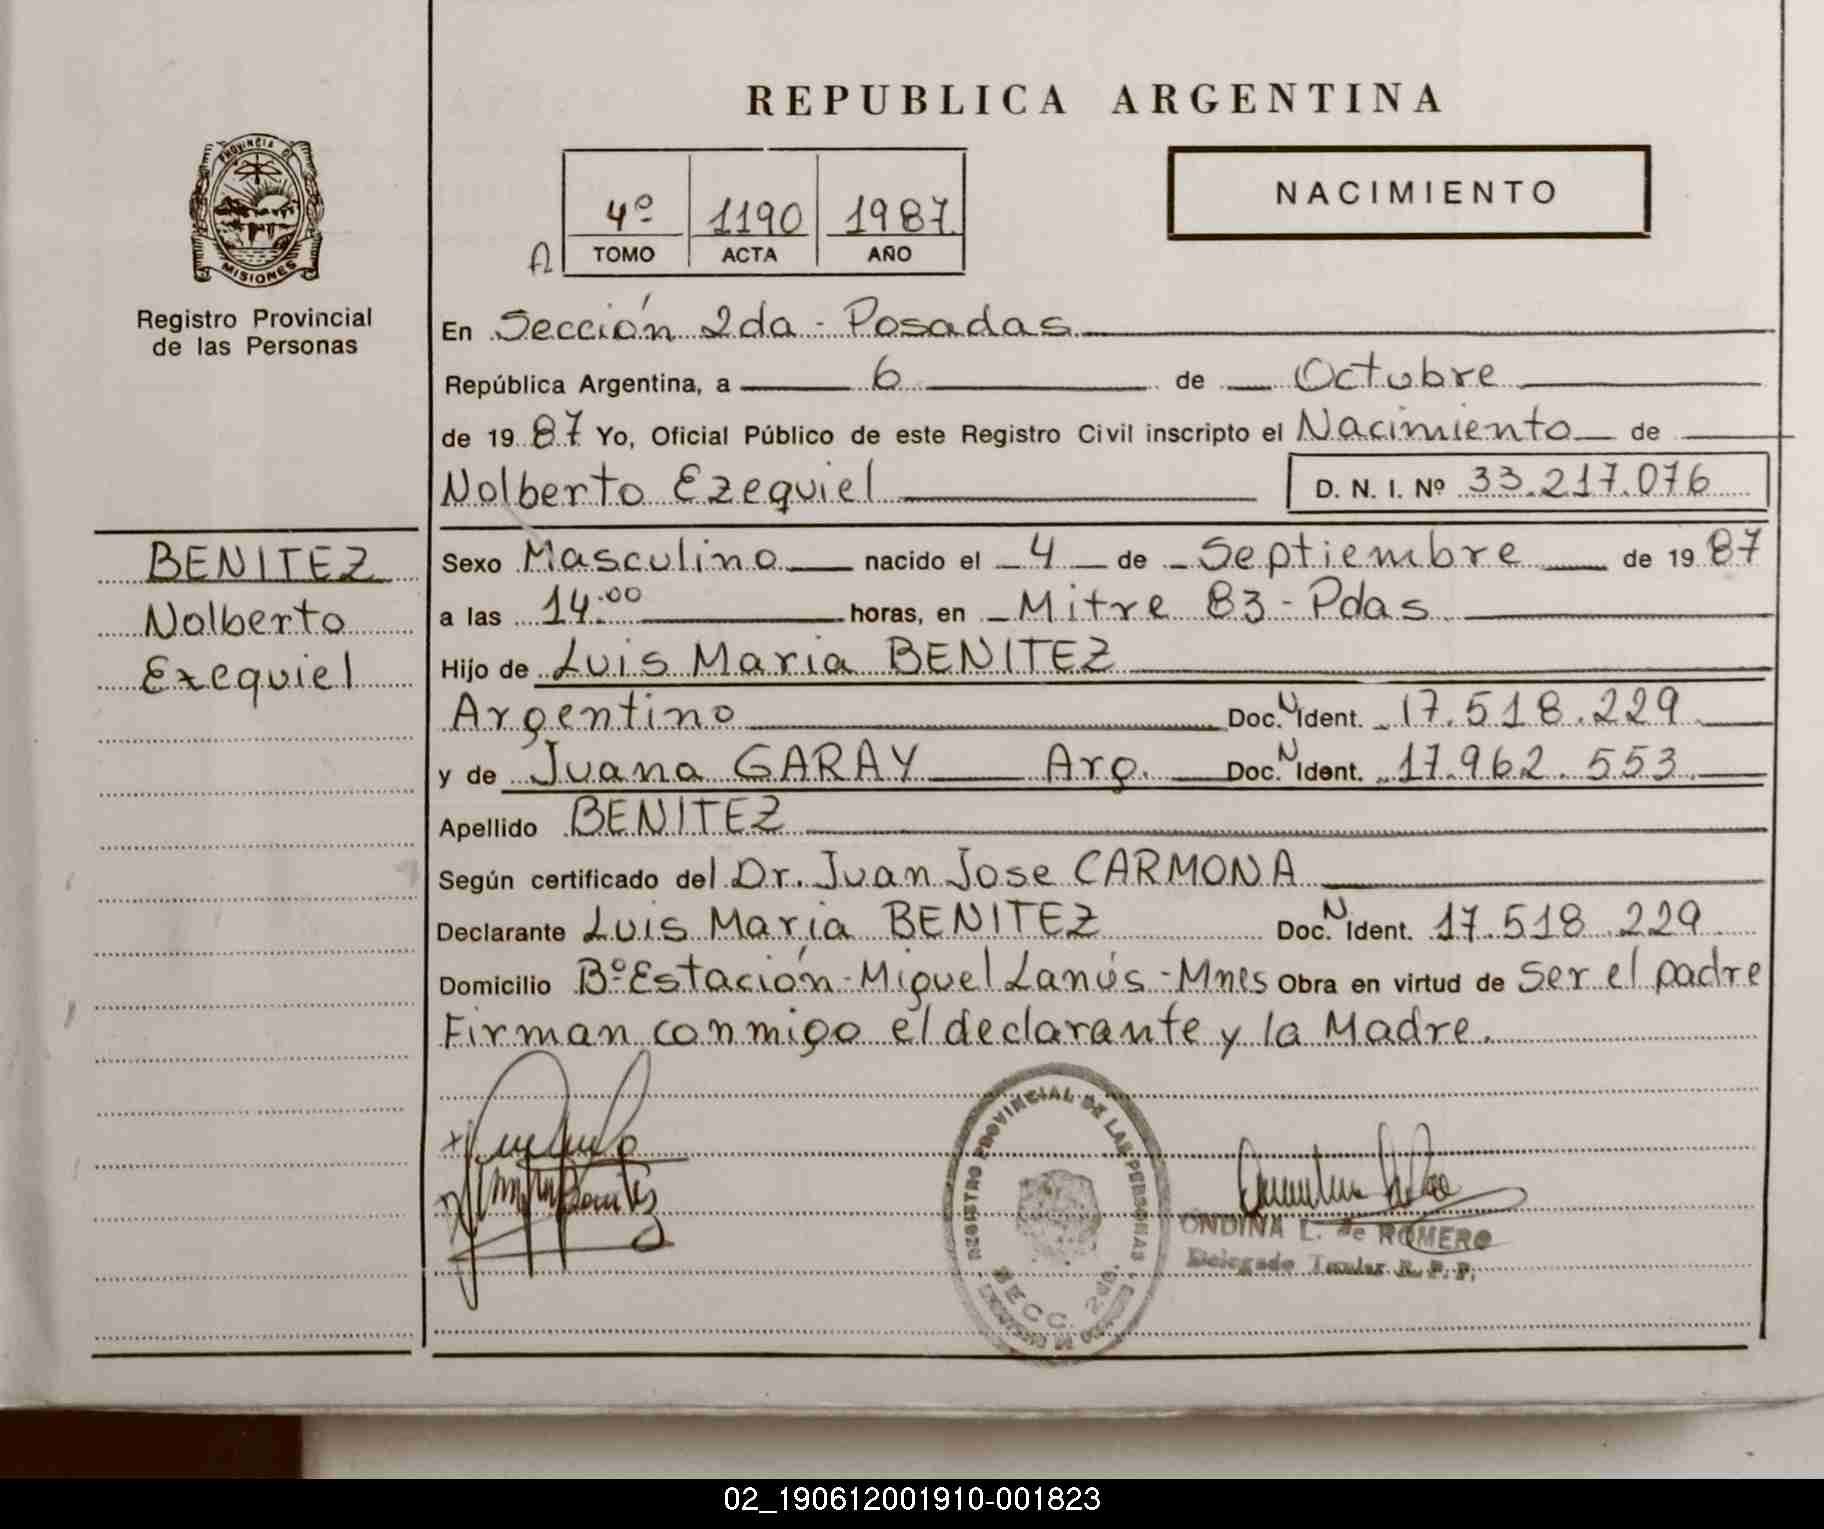 REPUBLICA ARGENTINA
PROVINCIA DE
MISIONES
Registro Provincial
de las Personas
4º 1190 1987
A TOMO ACTA AÑO
NACIMIENTO
En Sección 2da - Posadas
República Argentina, a 6 de Octubre
de 1987 Yo, Oficial Público de este Registro Civil inscripto el Nacimiento de
Nolberto Ezequiel D. N. I. Nº 33.217.076
BENITEZ
Nolberto
Ezequiel
Sexo Masculino nacido el 4 de Septiembre de 1987
a las 14:00 horas, en Mitre 83 - Pdas
Hijo de Luis Maria BENITEZ
Argentino Doc. N Ident. 17.518.229
y de Juana GARAY Arg. Doc. N Ident. 17.962.553
Apellido BENITEZ
Según certificado del Dr. Juan Jose CARMONA
Declarante Luis Maria BENITEZ Doc. N Ident. 17.518.229
Domicilio Bº Estación - Miguel Lanús - Mnes Obra en virtud de Ser el padre
Firman conmigo el declarante y la Madre.
REGISTRO PROVINCIAL DE LAS PERSONAS
SECC. 2da.
ONDINA L. de ROMERO
Delegado Titular R. P. P.
02_190612001910-001823